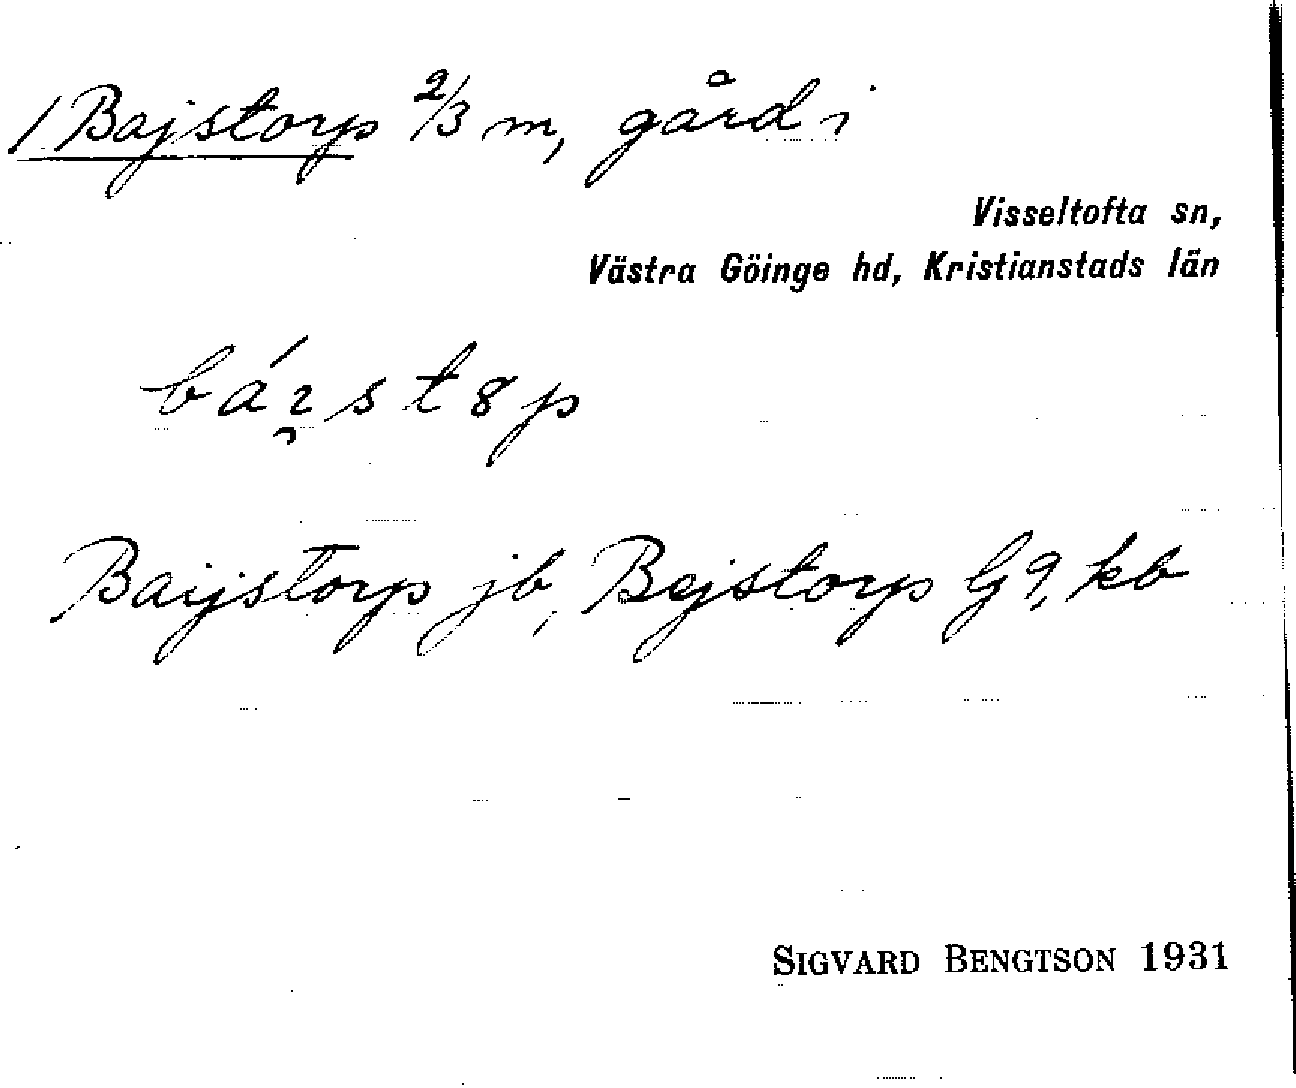 / Bajstorp 2/3 m, gård i
Visseltofta sn,
Västra Göinge hd, Kristianstads län
Baijstorp jb, Bejstorp kb
SIGVARD BENGTSON 1931